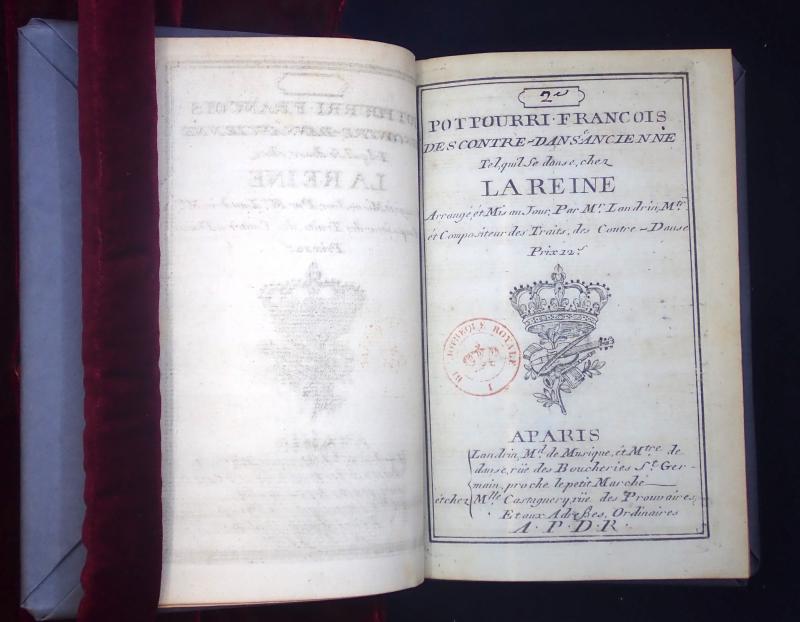 2e
POTPOURRI·FRANCOIS
DES CONTRE-DANSE ANCIENNE
Tel, qu'il Se danse, chez
LA REINE
Arrangé, ét Mis au Jour, Par Mr. Landrin, Mtre
ét Compositeur des Traits, des Contre-Danse
Prix 12.s
BIBLIOTHEQUE ROYALE
APARIS
Landrin, Md. de Musique, ét Mtre de
danse, rüe des Boucheries St. Ger-
main, proche le petit Marché
et chez Mlle Castagnery, rüe des Prouvaires,
Et aux Adreßes, Ordinaires
A·P·D·R·